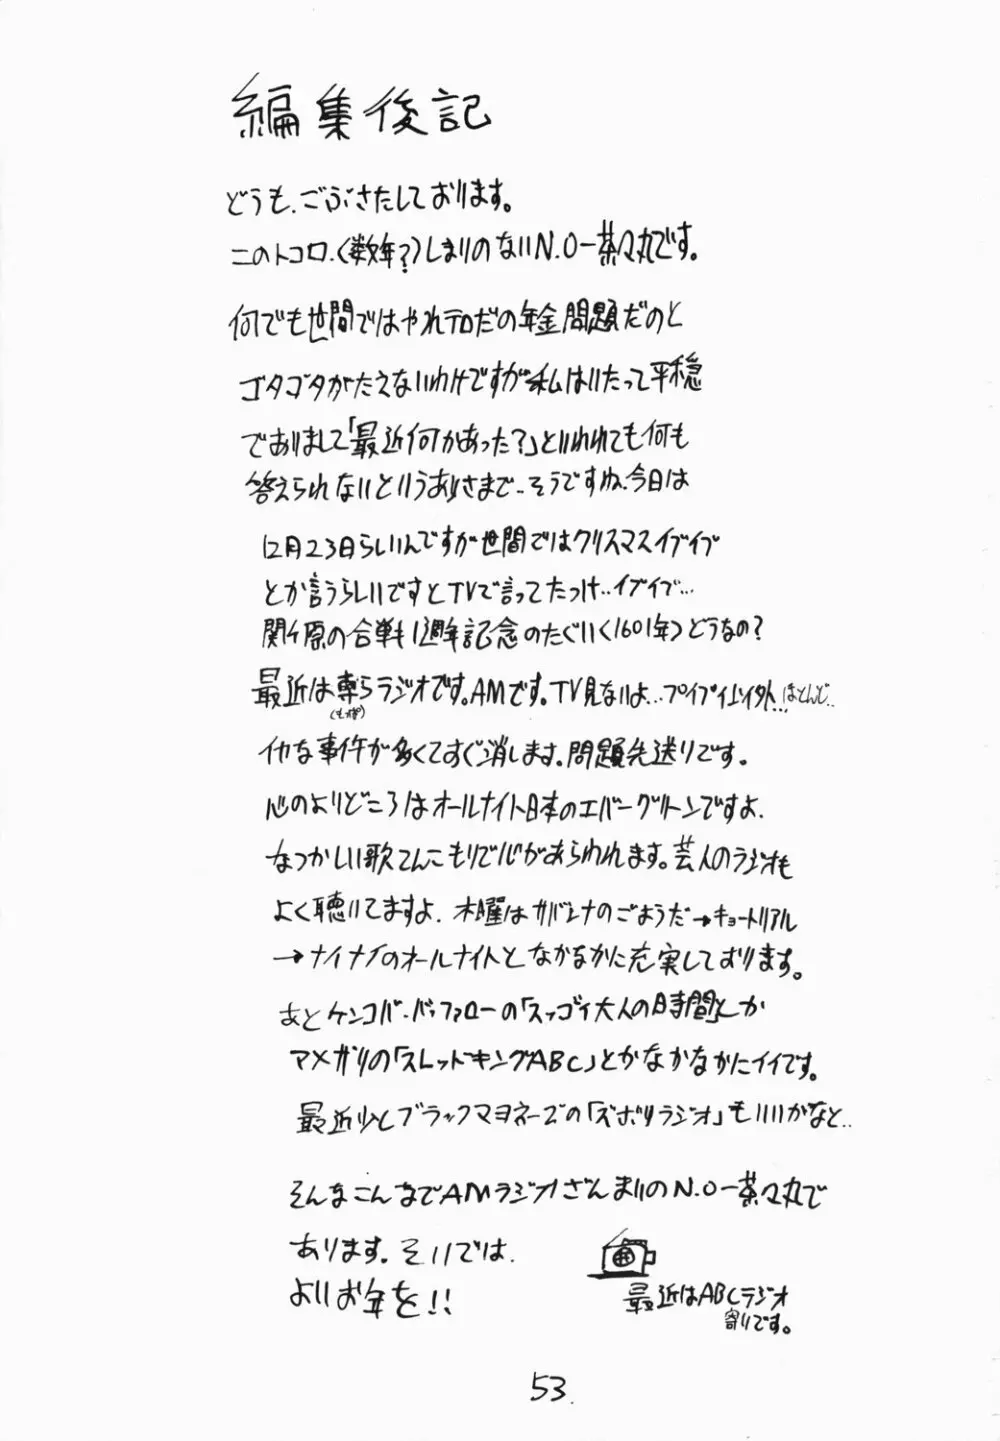 編集後記
どうも、ごぶさたしております。
このトコロ、(数年?)しまりのないN.O-茶々丸です。
何でも世間ではやれテロだの年金問題だのと
ゴタゴタがたえないわけですが私はいたって平穏
でありまして「最近何かあった?」といわれても何も
答えられないというありさまで..そうですね、今日は
12月23日らしいんですが世間ではクリスマスイブイブ
とか言うらしいですとTVで言ってたっけ..イブイブ...
関ヶ原の合戦も1週年記念のたぐい(1601年)どうなの?
最近は専らラジオです。AMです。TV見ないよ...プイプイ以外...ほとんど..
(もっぱ)
イカな事件が多くてすぐ消します。問題先送りです。
心のよりどころはオールナイト日本のエバーグリーンですよ、
なつかしい歌てんこもりで心があらわれます。芸人のラジオも
よく聴いてますよ、木曜はサバンナのごようだ→キョートリアル
→ナイナイのオールナイトとなかなかに充実しております。
あとケンコバ・バッファローの「スッゴイ大人の時間」とか
アメザリの「スレッドキングABC」とかなかなかにイイです。
最近少しブラックマヨネーズの「ズボリラジオ」もいいかなと..
そんなこんなでAMラジオざんまいのN.O-茶々丸で
あります。それでは、
よいお年を!!
最近はABCラジオ
寄りです。
53.